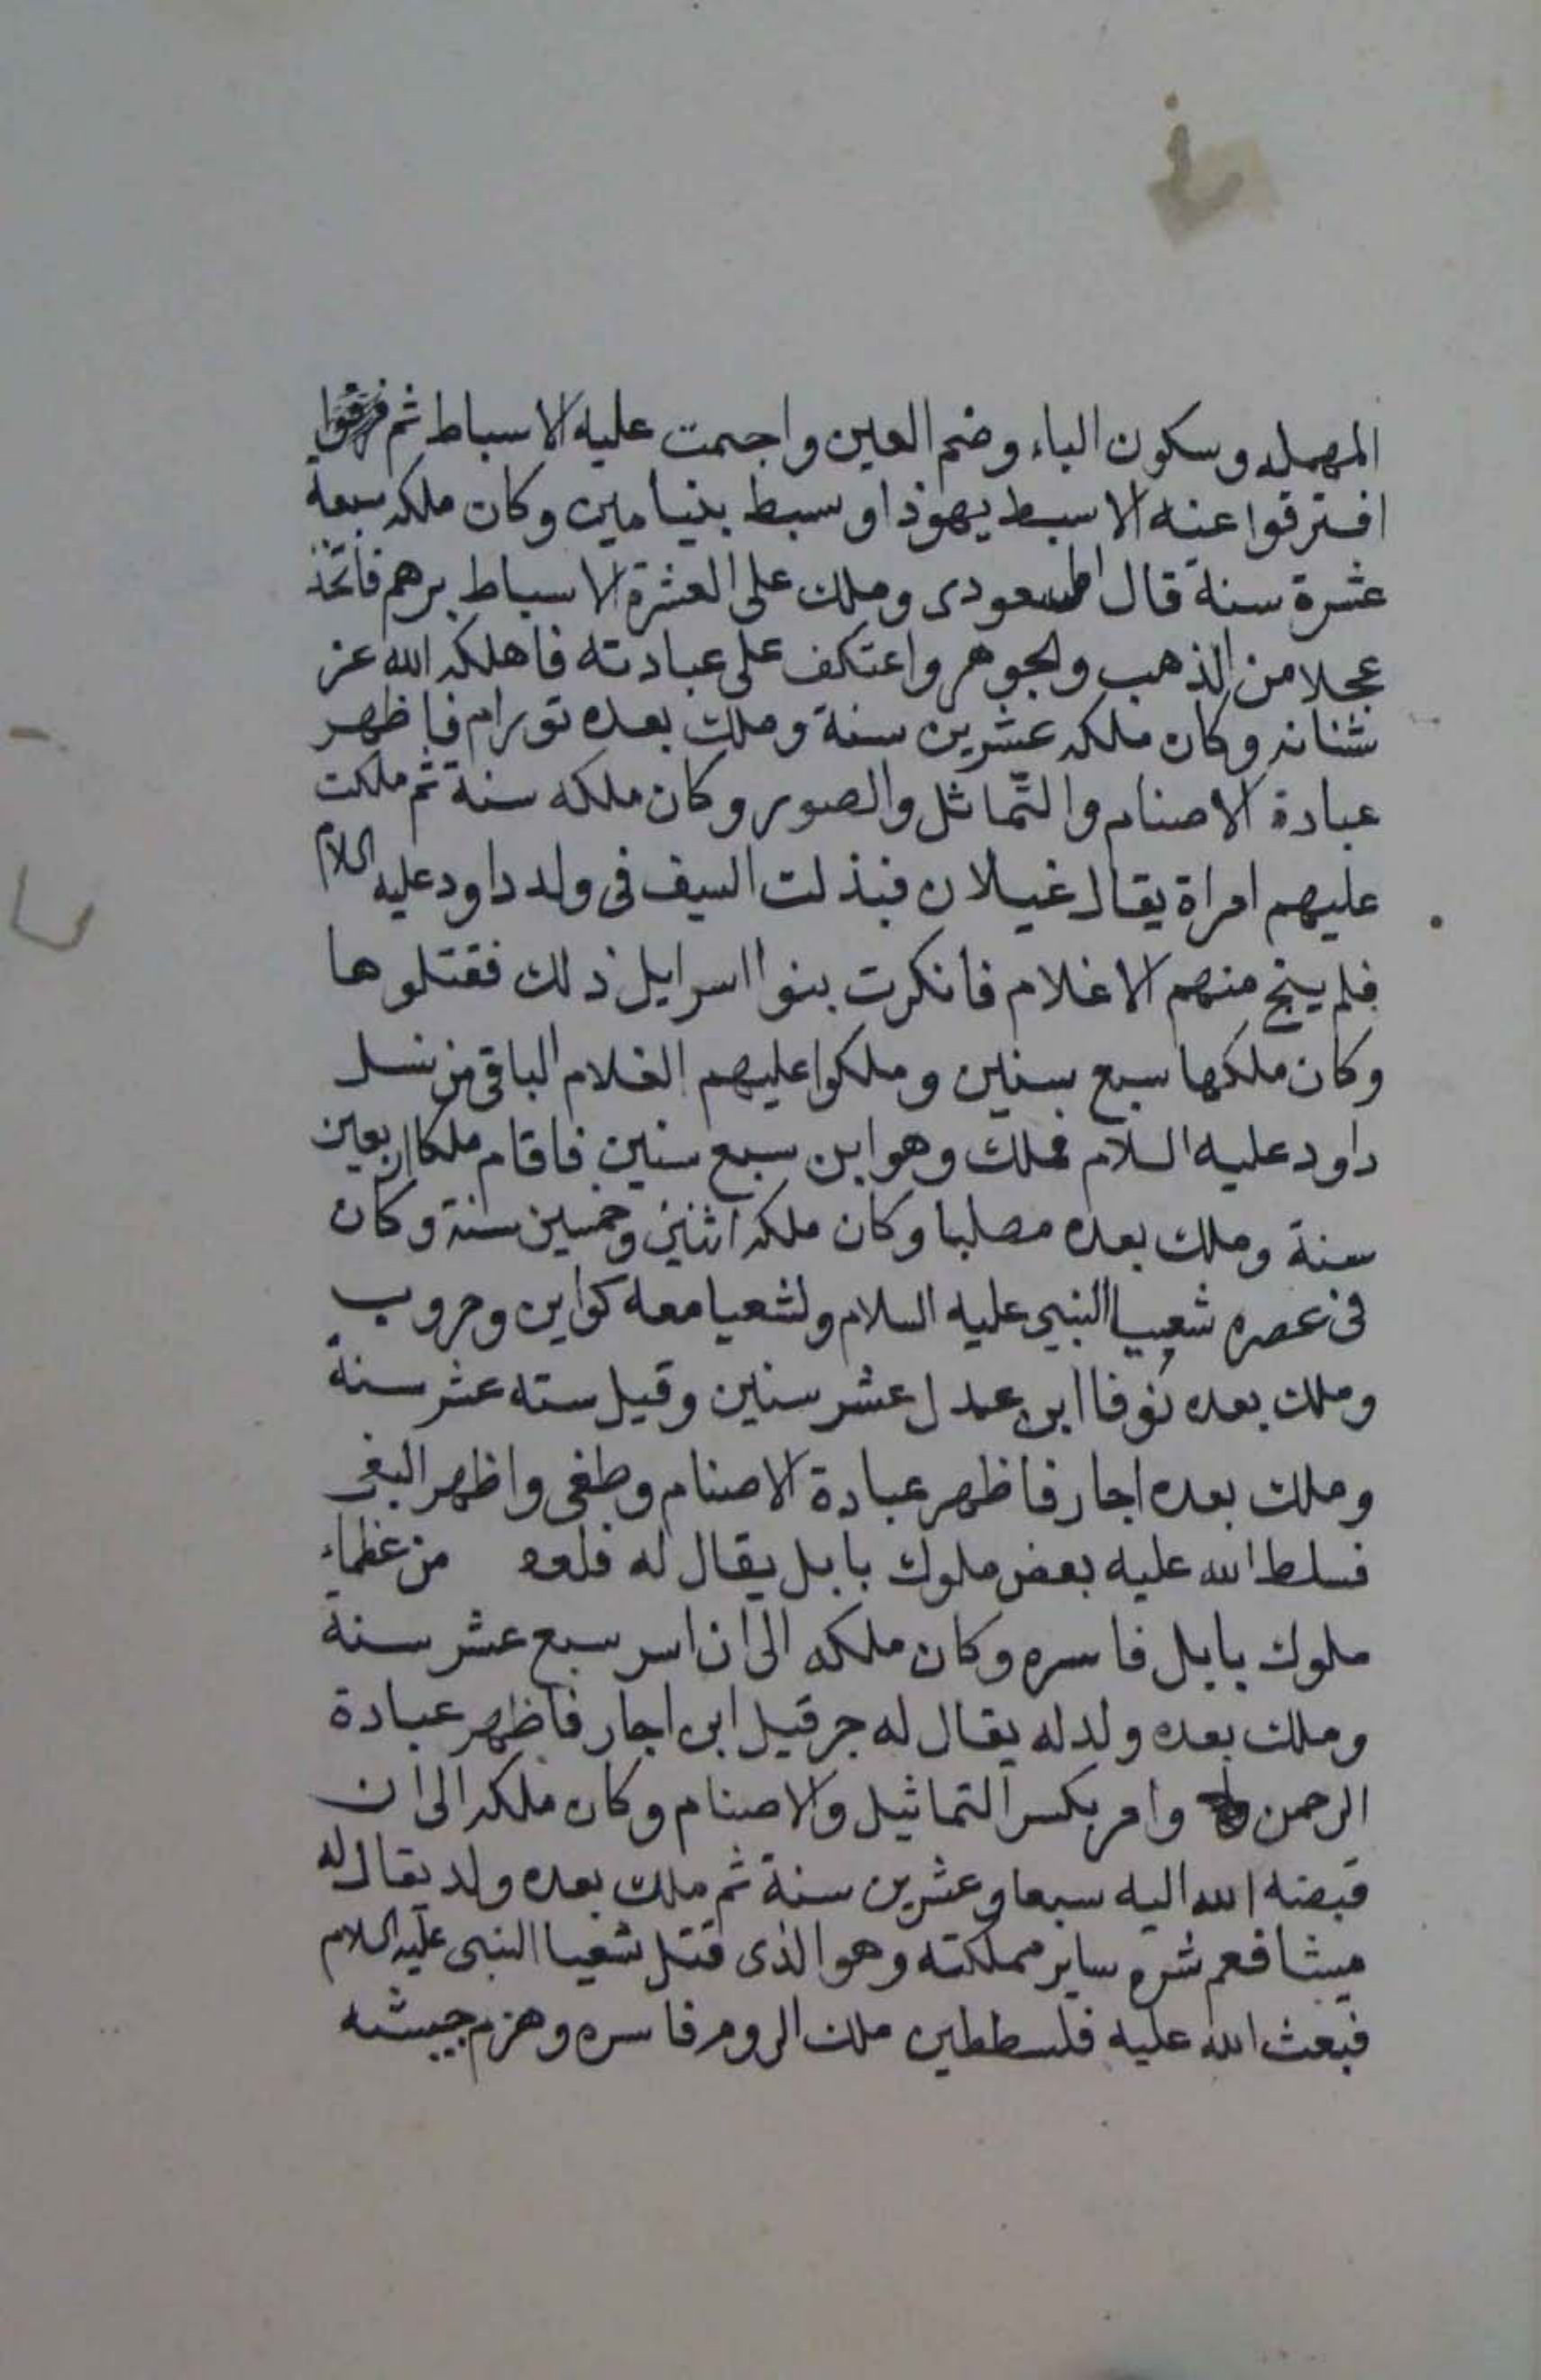 المهمله وسكون الباء وضم العين واجمت عليه الاسباط ثم
افترقوا عنه الا سبط يهوذا وسبط بنيامين وكان ملكه سبعة
عشرة سنة قال المسعودى وملك على العشرة الاسباط برهم فاتخذ
عجلا من الذهب والجوهر واعتكف على عبادته فاهلكه الله عز
شنانه وكان ملكه عشرين سنة وملك بعده تورام فاظهر
عبادة الاصنام والتّماثل والصور وكان ملكه سنة ثم ملكت
عليهم امراة يقال غيلان فبذلت السيف فى ولد داود عليه السلام
فلم ينج منهم الا غلام فانكرت بنوا اسرايل ذلك فقتلوها
وكان ملكها سبع سنين وملكوا عليهم الغلام الباقى من نسل
داود عليه السلام فملك وهو ابن سبع سنين فاقام ملكا اربعين
سنة وملك بعده مصليا وكان ملكه اثنين وخمسين سنة وكان
فى عصره شعيبا النبي عليه السلام ولشعيا معه كواين وحروب
وملك بعده نوفا ابن عدل عشر سنين وقيل سته عشر سنة
وملك بعده اجار فاظهر عبادة الاصنام وطغى واظهر البغى
فسلط الله عليه بعض ملوك بابل يقال له من عظماء
ملوك بابل فاسره وكان ملكه الى ان اسر سبع عشر سنة
وملك بعده ولد له يقال له جرقيل ابن اجار فاظهر عبادة
الرحمن وامر بكسر التماثيل والاصنام وكان ملكه الى ان
قبضه الله اليه سبعا وعشرين سنة ثم ملك بعده ولد يقال له
ميشا فعم شره ساير مملكته وهو الذى قتل شعيا النبى عليه السلام
فبعث الله عليه فلسططين ملك الروم فاسره وهزم جيشه